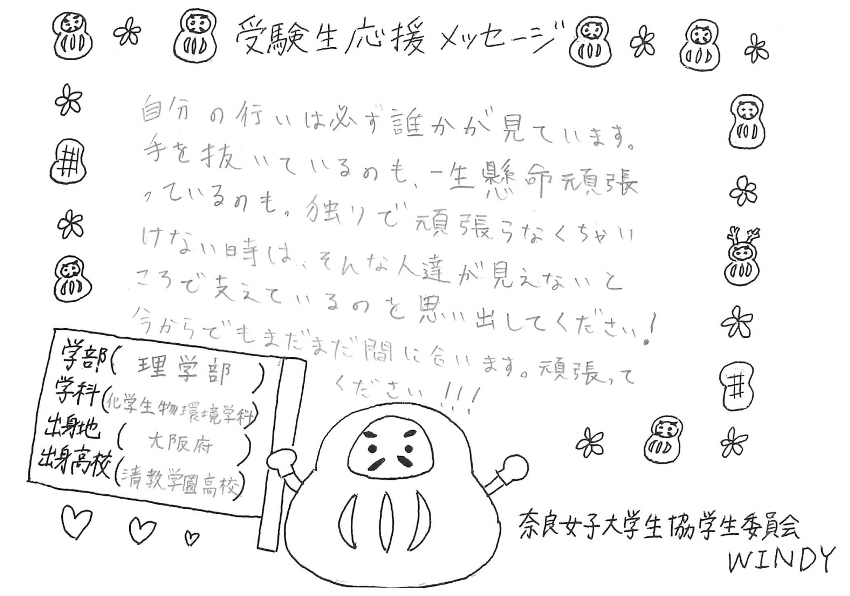 受験生応援メッセージ
自分の行いは必ず誰かが見ています。
手を抜いているのも、一生懸命頑張
っているのも。独りで頑張らなくちゃい
けない時は、そんな人達が見えないと
ころで支えているのを思い出してください!
今からでもまだまだ間に合います。頑張って
ください!!!
学部(理学部)
学科(化学生物環境学科)
出身地(大阪府)
出身高校(清教学園高校)
奈良女子大学生協学生委員会
WINDY